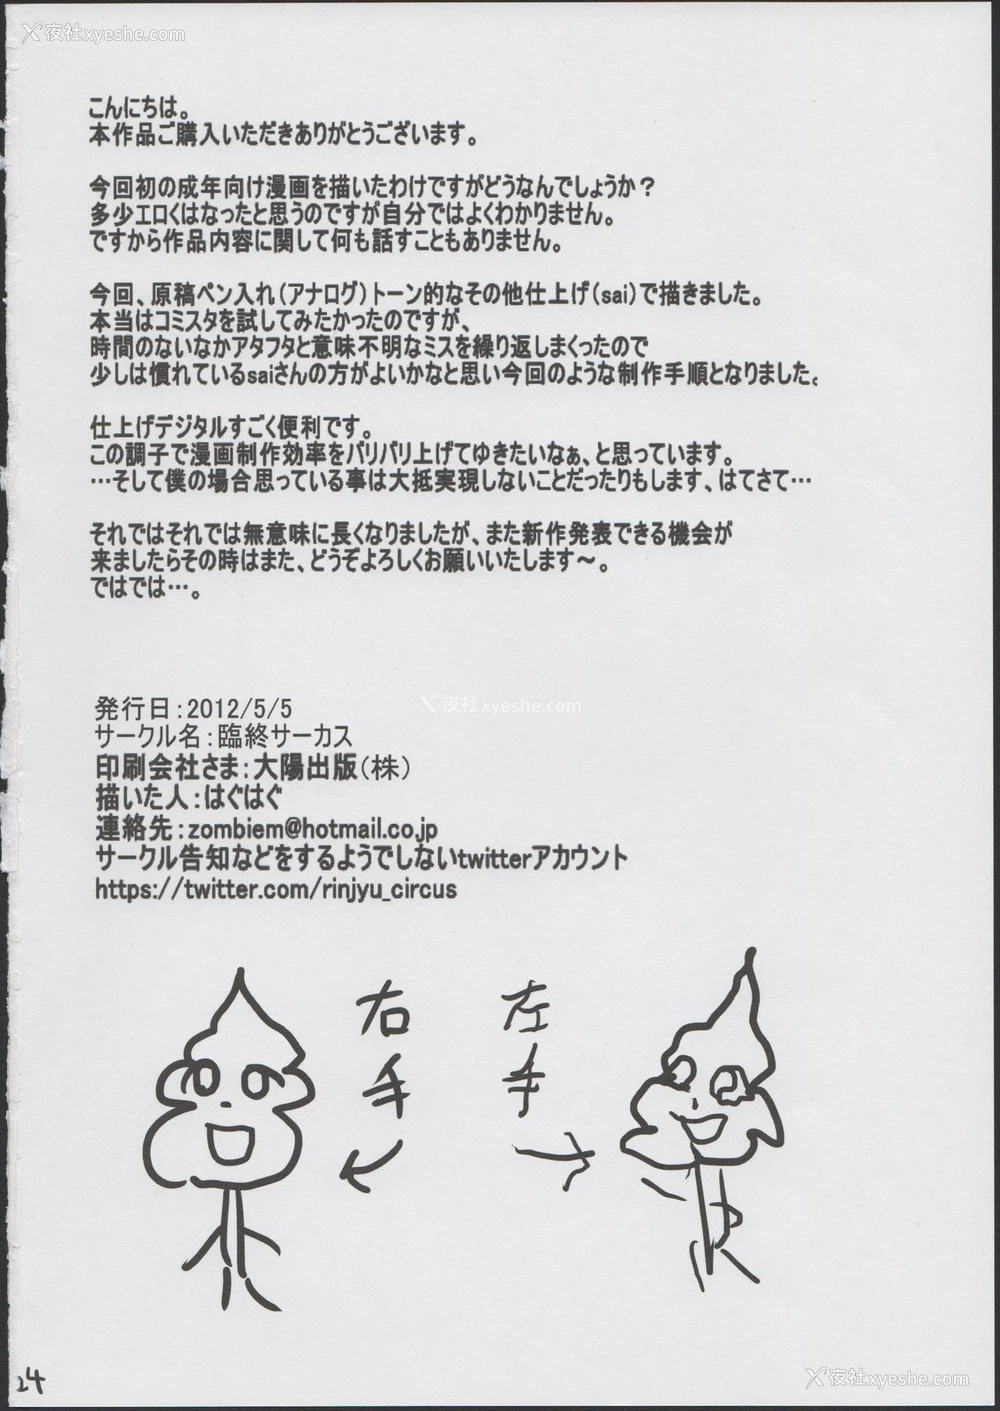 夜社xyeshe.com
こんにちは。
本作品ご購入いただきありがとうございます。
今回初の成年向け漫画を描いたわけですがどうなんでしょうか？
多少エロくはなったと思うのですが自分ではよくわかりません。
ですから作品内容に関して何も話すこともありません。
今回、原稿ペン入れ（アナログ）トーン的なその他仕上げ（sai）で描きました。
本当はコミスタを試してみたかったのですが、
時間のないなかアタフタと意味不明なミスを繰り返しまくったので
少しは慣れているsaiさんの方がよいかなと思い今回のような制作手順となりました。
仕上げデジタルすごく便利です。
この調子で漫画制作効率をバリバリ上げてゆきたいなぁ、と思っています。
…そして僕の場合思っている事は大抵実現しないことだったりもします、はてさて…
それではそれでは無意味に長くなりましたが、また新作発表できる機会が
来ましたらその時はまた、どうぞよろしくお願いいたします～。
ではでは…。
発行日：2012/5/5
夜社xyeshe.com
サークル名：臨終サーカス
印刷会社さま：大陽出版（株）
描いた人：はぐはぐ
連絡先：zombiem@hotmail.co.jp
サークル告知などをするようでしないtwitterアカウント
https://twitter.com/rinjyu_circus
右手
左手
24
夜社xyeshe.com